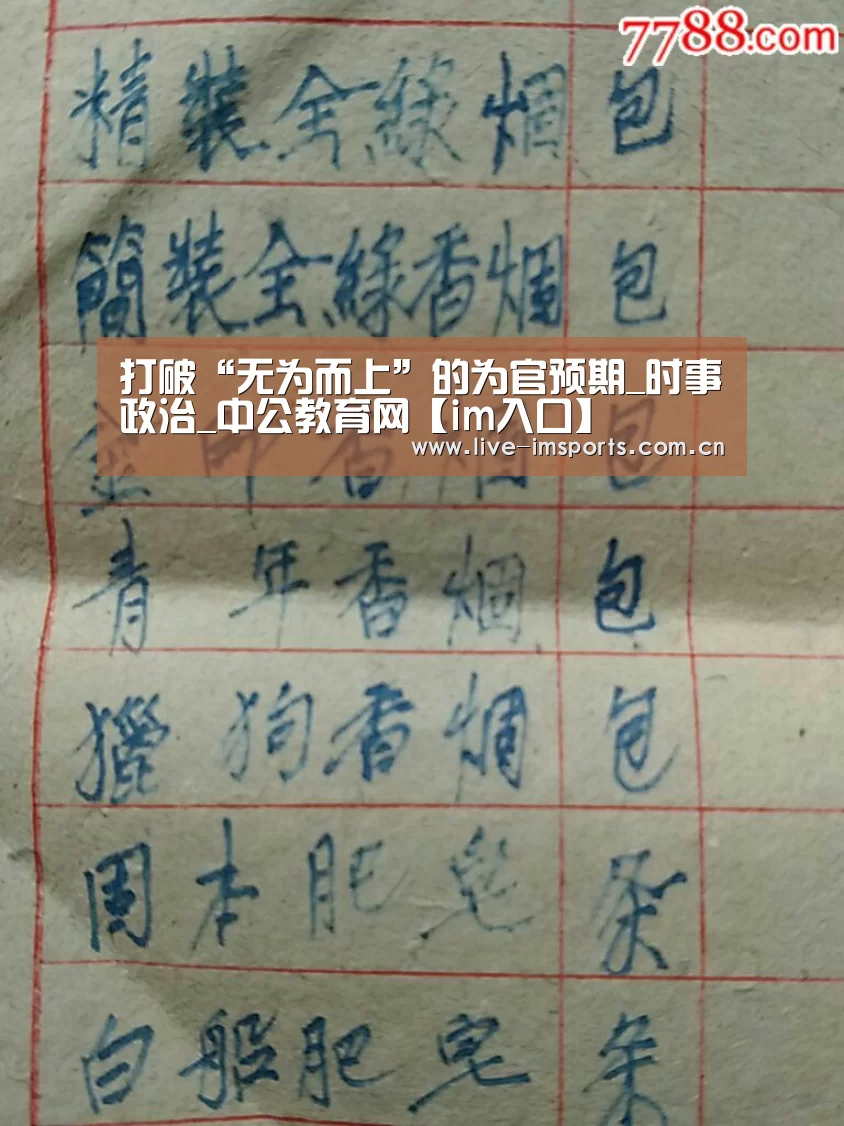 7788.com
精裝全綠烟 包
簡裝全綠香烟 包
打破“无为而上”的为官预期_时事
政治_中公教育网【im入口】
www.live-imsports.com.cn
香烟 包
青年香烟 包
獵狗香烟 包
固本肥皂 条
白船肥皂 条